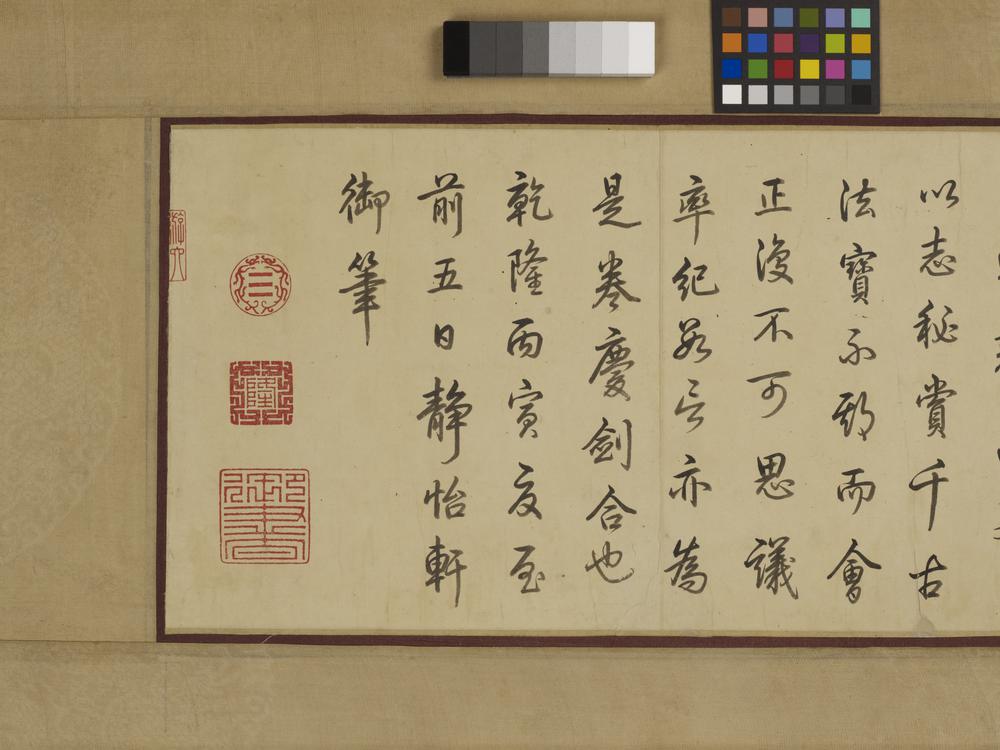 以志秘賞千古
法寶不期而會
正復不可思議
率紀數言亦為
是卷慶劍合也
乾隆丙寅夏至
前五日靜怡軒
御筆
隆